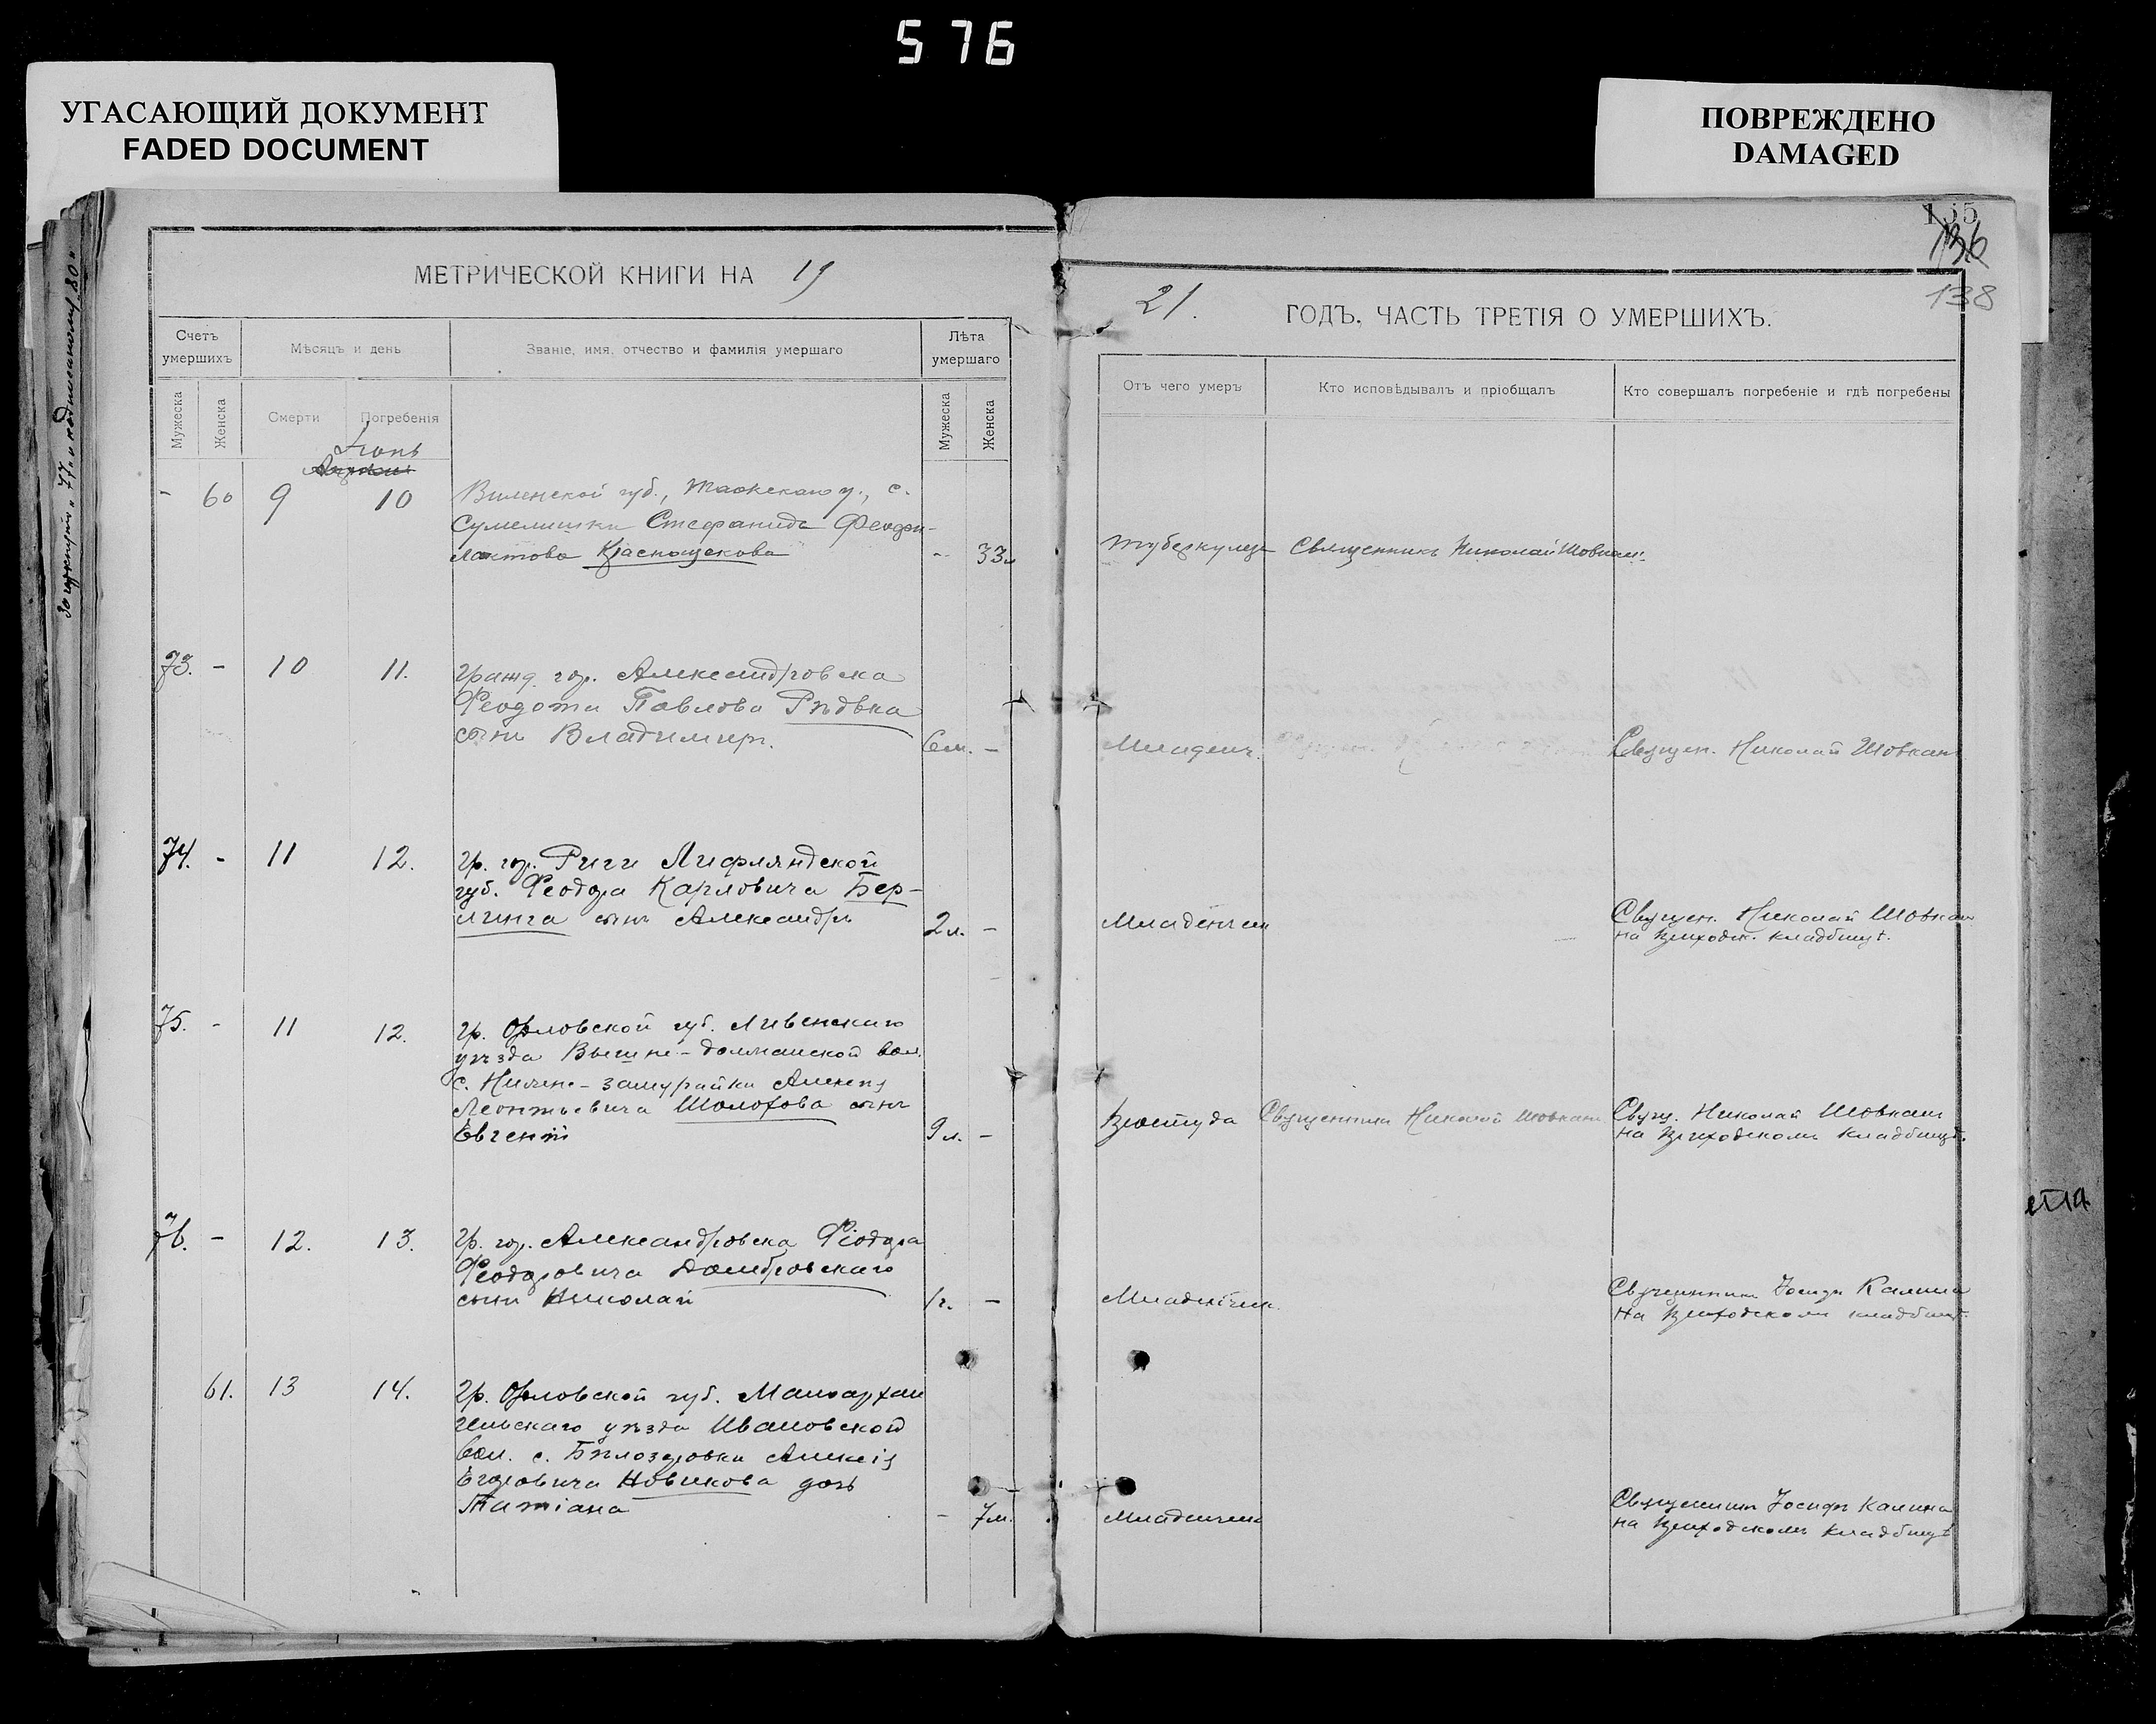 576
УГАСАЮЩИЙ ДОКУМЕНТ
FADED DOCUMENT
ПОВРЕЖДЕНО
DAMAGED
135
136
138
МЕТРИЧЕСКОЙ КНИГИ НА 19
21. ГОДЪ, ЧАСТЬ ТРЕТІЯ О УМЕРШИХЪ.
Счетъ умершихъ
Мѣсяцъ и день
Званіе, имя, отчество и фамилія умершаго
Лѣта умершаго
Отъ чего умеръ
Кто исповѣдывалъ и пріобщалъ
Кто совершалъ погребеніе и гдѣ погребены
Мужеска
Женска
Смерти
Погребенія
Мужеска
Женска
- 60 9 10 Виленской губ., у., с.
Сумелишки Стефанида Феофи-
лактова Краснощекова - 33л
туберкулезъ Священникъ Николай Шовкан
73. - 10 11. Гражд. гор. Александровска
Феодота Павлова Рѣдька
сынъ Владимиръ. 6м. -
Младенч. Священ. Николай Шовкан
74. - 11 12. Гр. гор. Риги Лифляндской
губ. Феодора Карловича Бер-
линга сынъ Александръ 2л. -
Младенческ
Священ. Николай Шовкан
на приходск. кладбищѣ.
75. - 11 12. Гр. Орловской губ. Ливенскаго
уѣзда вол.
с. Алексѣя
Леонтьевича Шолохова сынъ
Евгеній 9л. -
Простуда Священникъ Николай Шовкан
Свящ. Николай Шовкан
на приходскомъ кладбищѣ.
76. - 12. 13. Гр. гор. Александровска Феодора
Феодоровича Домбровскаго
сынъ Николай 1г. -
Младенческ.
Священникъ Іосифъ Калина
на приходскомъ кладбищѣ.
61. 13 14. Гр. Орловской губ. Малоархан
гельскаго уѣзда Ивановской
вол. с. Алексія
Егоровича Новикова дочь
Татіана - 7м.
Младенческ
Священникъ Іосифъ Калина
на приходскомъ кладбищѣ